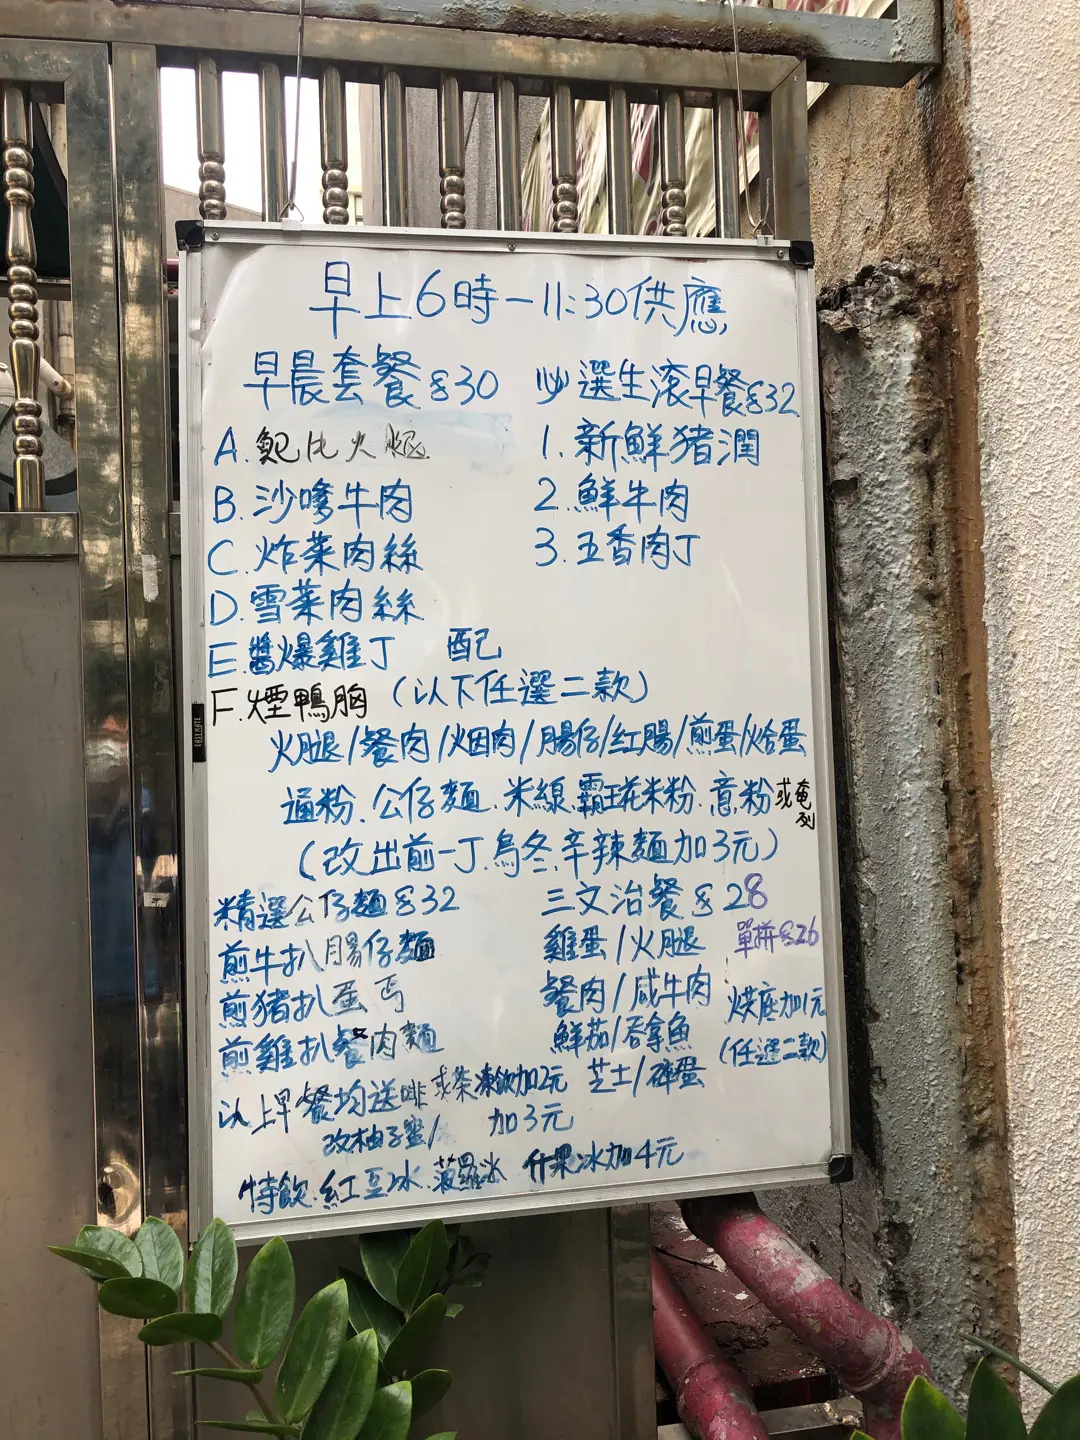 早上6時－11:30供應
早晨套餐$30
A.鮑比火腿
B.沙嗲牛肉
C.炸菜肉絲
D.雪菜肉絲
E.醬爆雞丁 配
F.煙鴨胸 (以下任選二款)
必選生滚早餐$32
1.新鮮猪潤
2.鮮牛肉
3.五香肉丁
火腿/餐肉/烟肉/腸仔/紅腸/煎蛋/炝蛋
通粉.公仔麵.米線.霸王花米粉.意粉或奄列
(改出前一丁.烏冬.辛辣麵加3元)
精選公仔麵$32
煎牛扒腸仔麵
煎猪扒蛋丐
煎雞扒餐肉麵
三文治餐$28
雞蛋/火腿 單拼$26
餐肉/咸牛肉 烘底加1元
鮮茄/吞拿魚 (任選二款)
芝士/碎蛋
以上早餐均送啡或茶凍飲加2元
改柚子蜜/ 加3元
特飲.紅豆冰.菠蘿冰 什果冰加4元